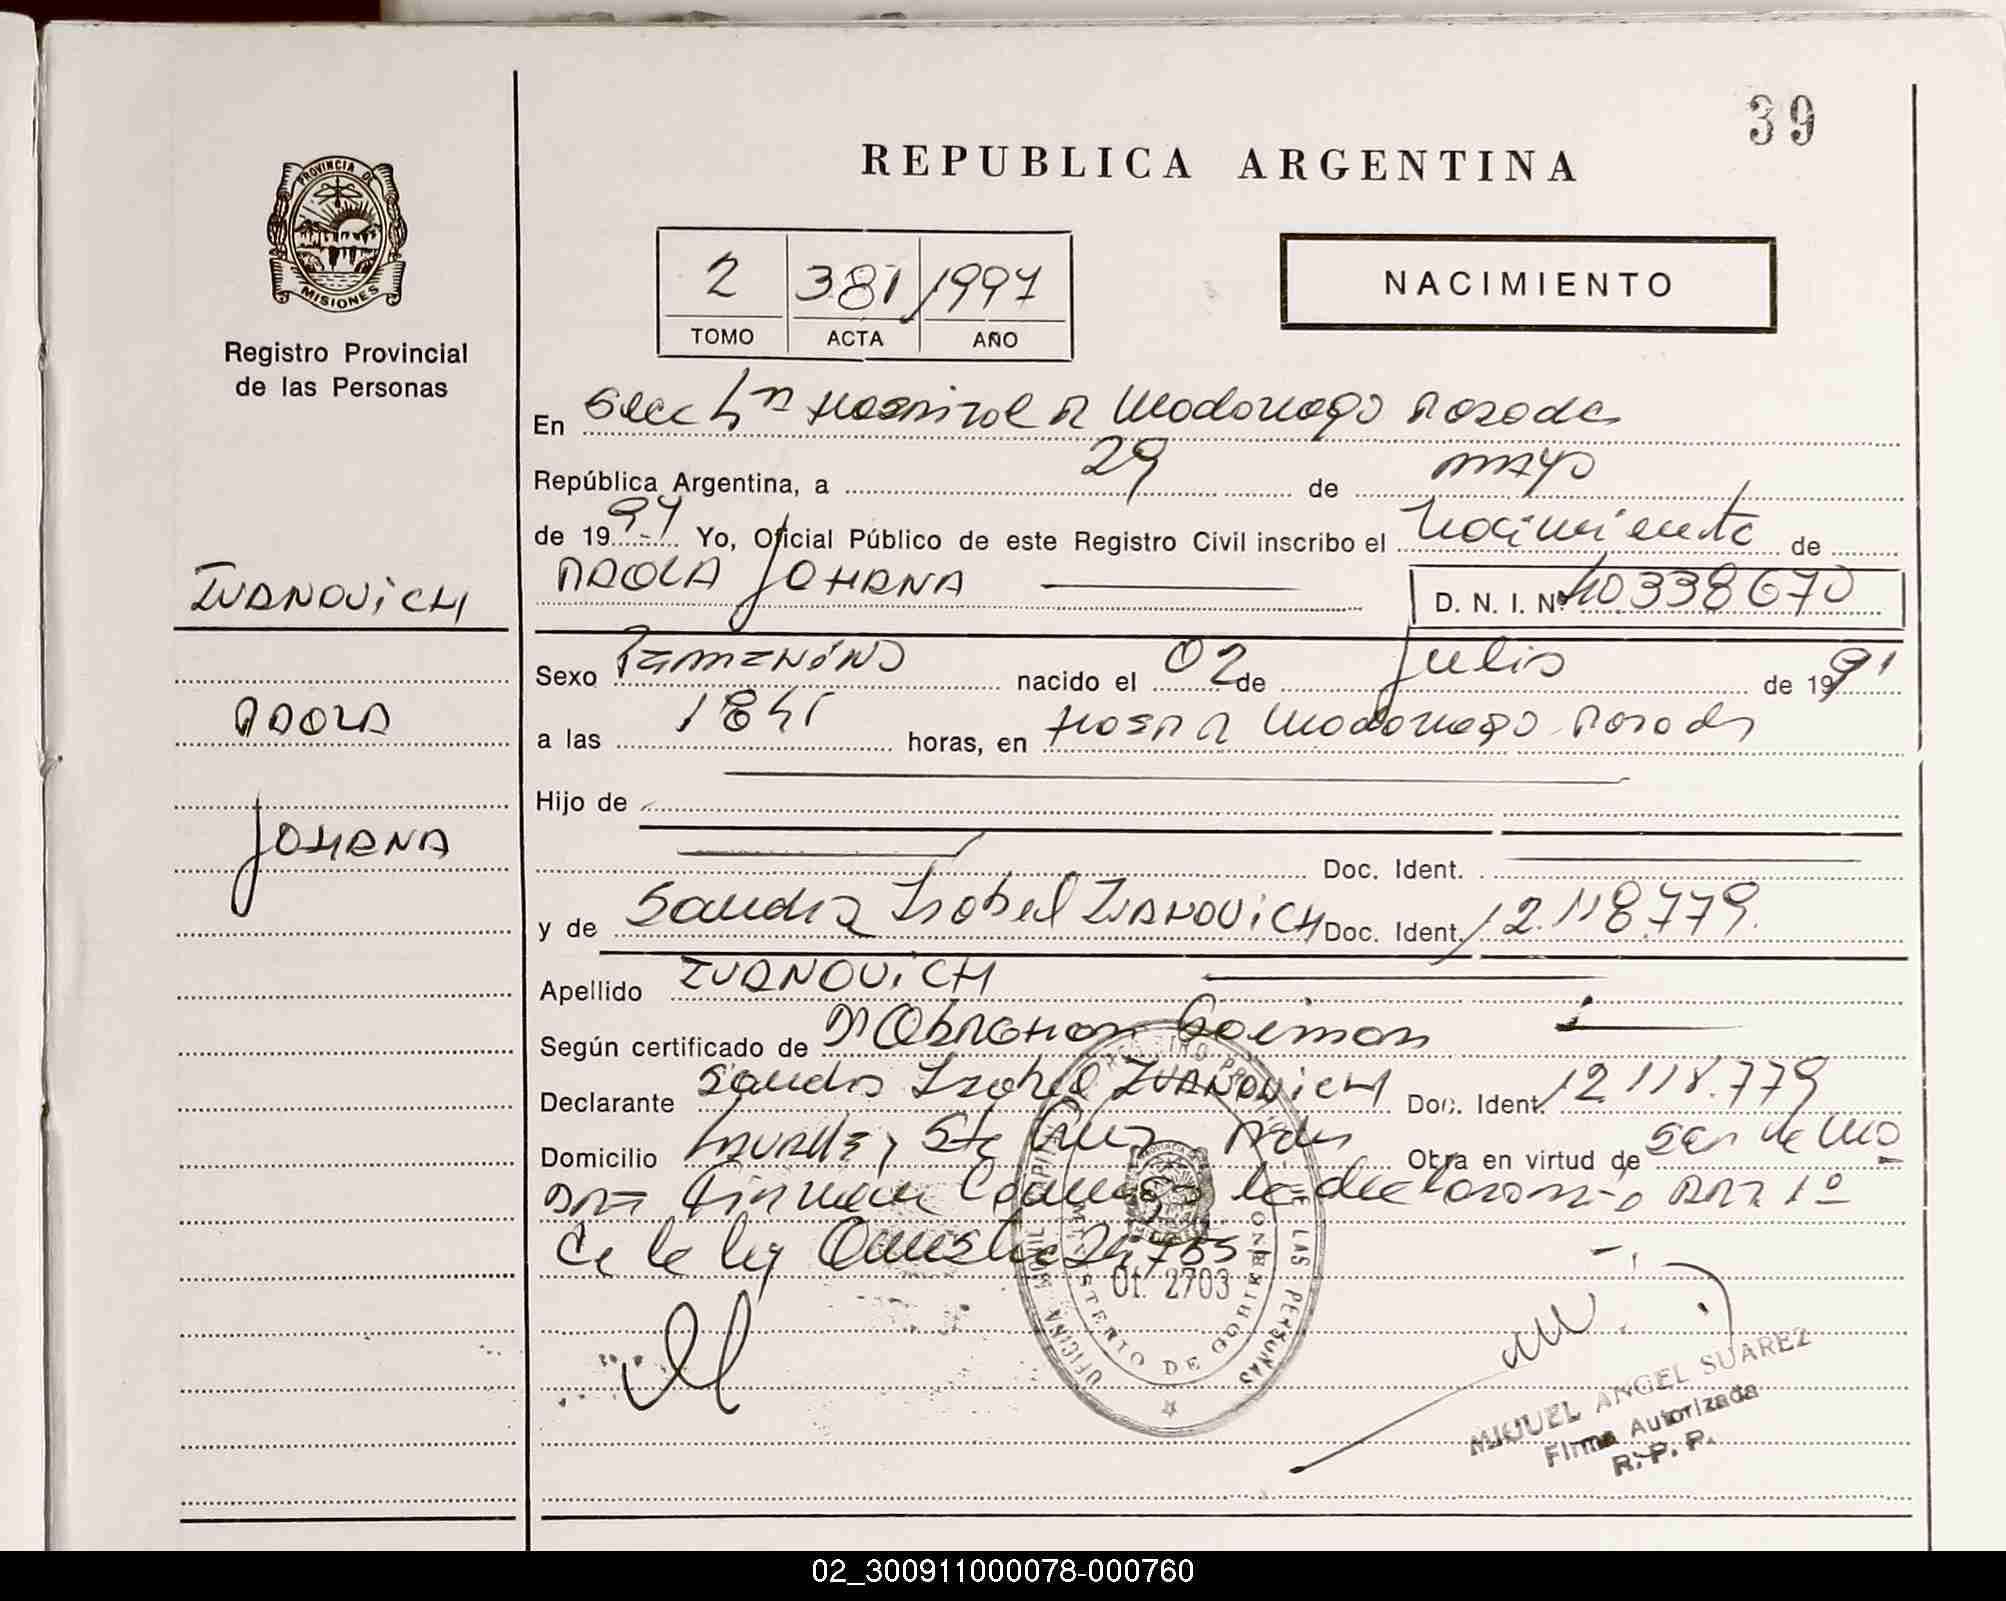 39
REPUBLICA ARGENTINA
PROVINCIA DE
MISIONES
Registro Provincial
de las Personas
2 381 1997
TOMO ACTA AÑO
NACIMIENTO
En Hospital R Madariaga Posadas
República Argentina, a 29 de mayo
de 1997 Yo, Oficial Público de este Registro Civil inscribo el Nacimiento de
PAOLA JOHANA D. N. I. Nº 40338670
IVANOVICH
PAOLA
JOHANA
Sexo Femenino nacido el 02 de Julio de 1991
a las 1845 horas, en Hosp R Madariaga Posadas
Hijo de
Doc. Ident.
y de Sandra Isabel IVANOVICH Doc. Ident. 12.118.779.
Apellido IVANOVICH
Según certificado de
Declarante Sandra Isabel IVANOVICH Doc. Ident. 12.118.779
Domicilio Sta Cruz Pdas Obra en virtud de
1º
de la ley
OFICINA MOVIL REGISTRO PROVINCIAL DE LAS PERSONAS
MINISTERIO DE GOBIERNO
Of. 2703
MIGUEL ANGEL SUAREZ
Firma Autorizada
R. P. P.
02_300911000078-000760